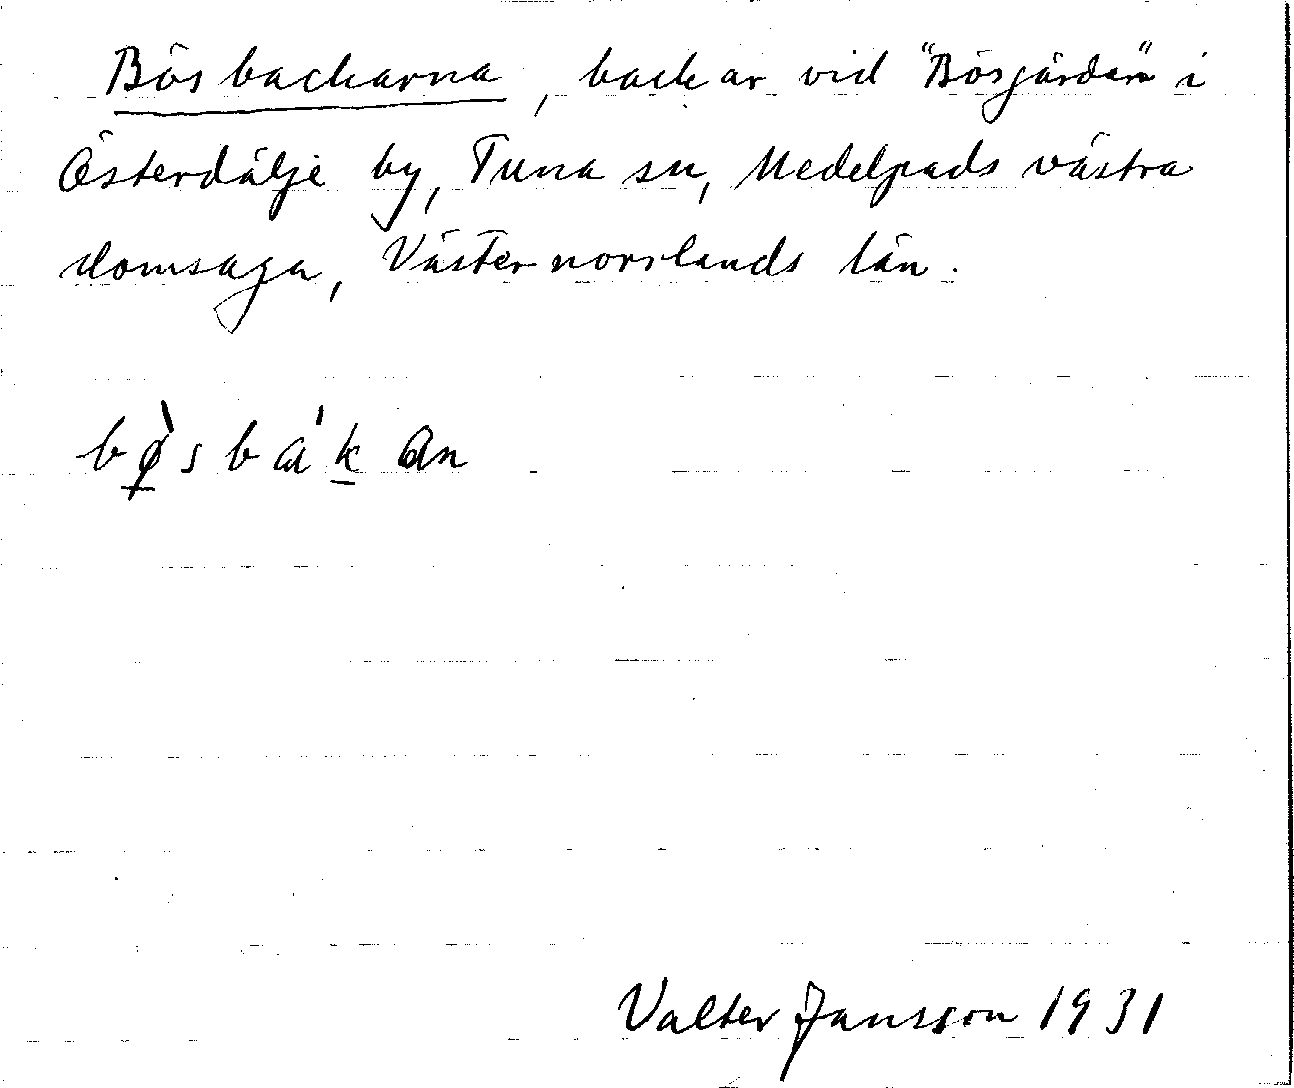 Bösbackarna, backar vid "Bösgården" i
Österdälje by, Tuna sn, Medelpads västra
domsaga, Västernorrlands län.
bø̀sbák an
Valter Jansson 1931